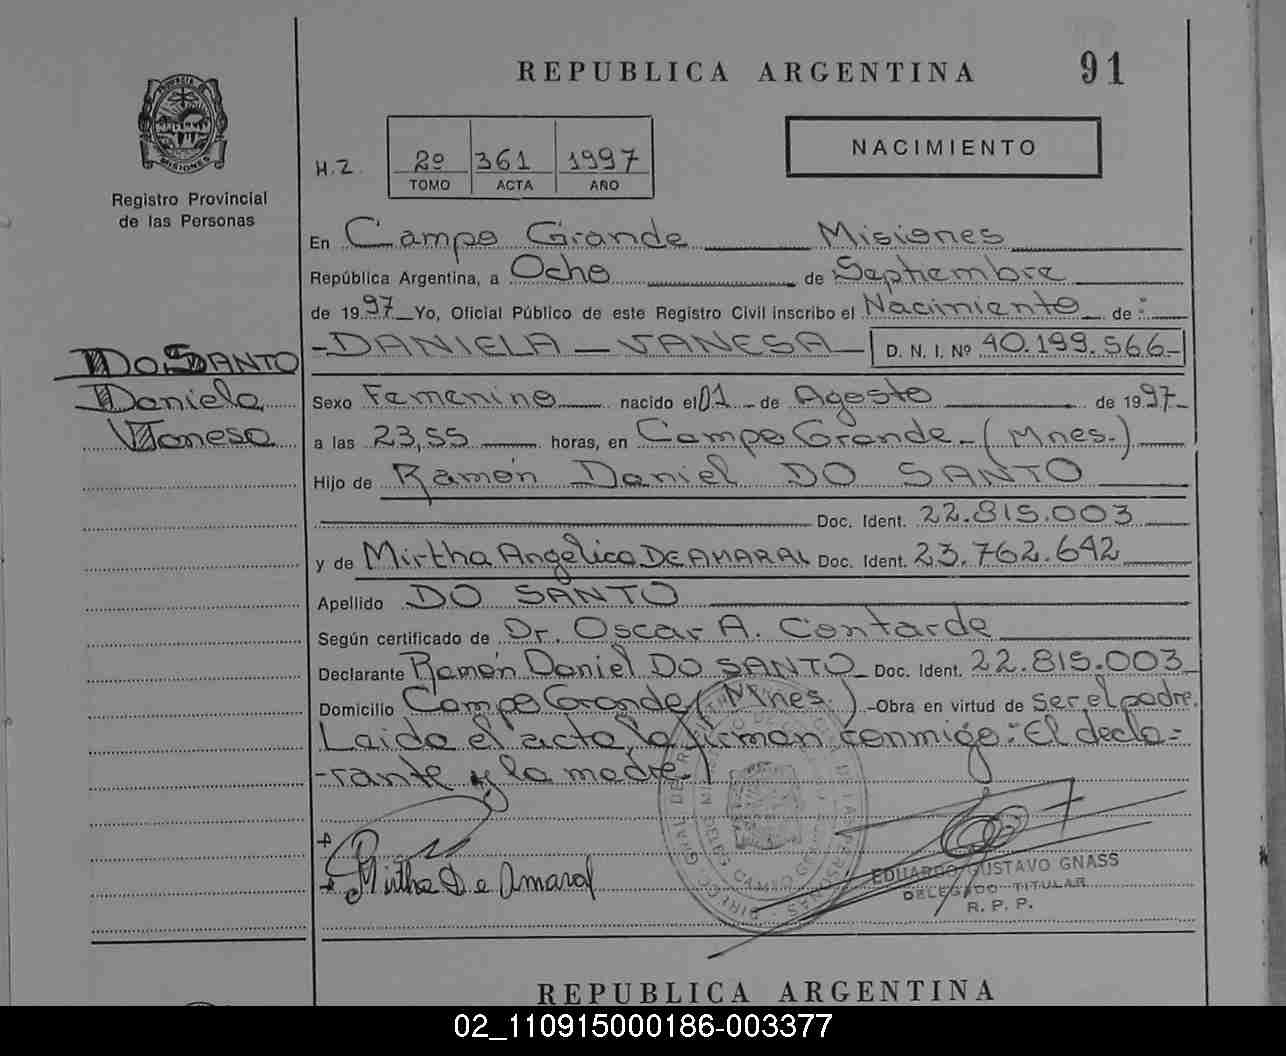 REPUBLICA ARGENTINA 91
PROVINCIA DE MISIONES
Registro Provincial
de las Personas
H.Z. 2º 361 1997
TOMO ACTA AÑO
NACIMIENTO
En Campo Grande Misiones
República Argentina, a Ocho de Septiembre
de 1997 Yo, Oficial Público de este Registro Civil inscribo el Nacimiento de:
-DANIELA - VANESA D. N. I. Nº 40.199.566-
DO SANTO
Daniela
Vanesa
Sexo Femenino nacido el 01 de Agosto de 1997-
a las 23,55 horas, en Campo Grande-(Mnes.)
Hijo de Ramón Daniel DO SANTO
Doc. Ident. 22.815.003
y de Mirtha Angelica DE AMARAL Doc. Ident. 23.762.642
Apellido DO SANTO
Según certificado de Dr. Oscar A. Contarde
Declarante Ramón Daniel DO SANTO Doc. Ident. 22.815.003
Domicilio Campo Grande (Mnes.) -Obra en virtud de ser el padre.
Laida el acta, la firman conmigo: El decla=
-rante y la madre.)
Mirtha De Amaral
EDUARDO GUSTAVO GNASS
DELEGADO TITULAR
R. P. P.
REPUBLICA ARGENTINA
02_110915000186-003377